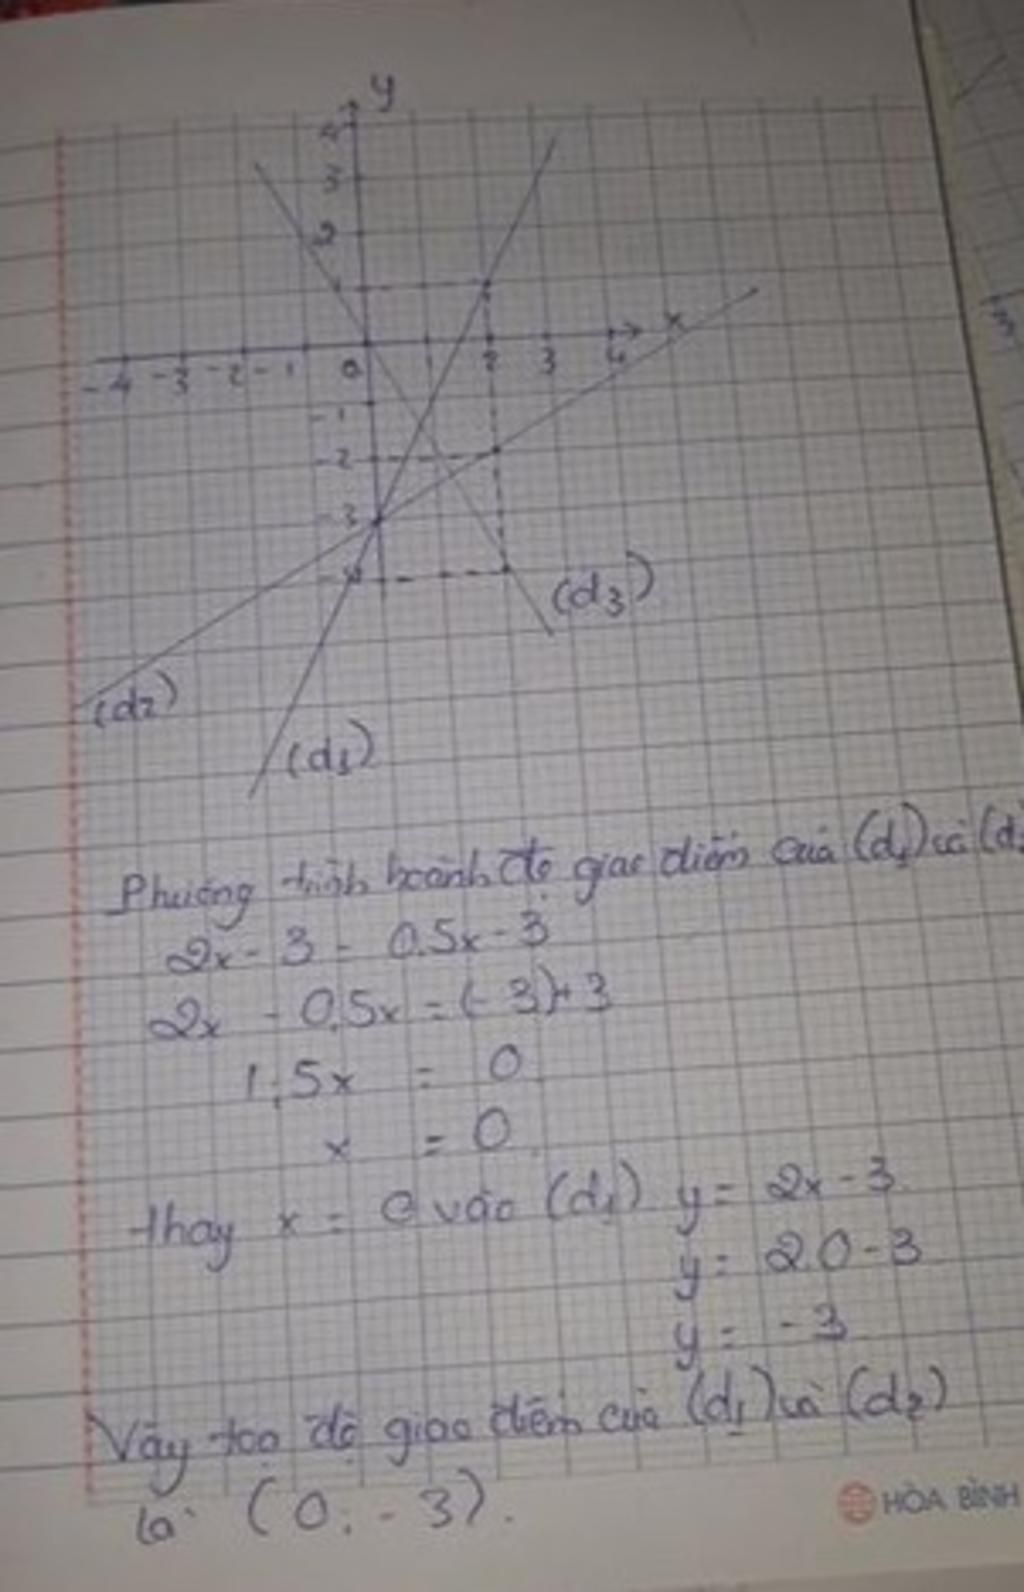 y
4
3
2
1
x
-4 -3 -2 -1 0 1 2 3 4
-1
-2
-3
-4
(d3)
(d2)
(d1)
Phương trình hoành độ giao điểm của (d1) và (d
2x - 3 = 0.5x - 3
2x - 0.5x = (-3)+3
1,5x = 0
x = 0
thay x = 0 vào (d1) y = 2x - 3
y = 2.0 - 3
y = -3
Vậy toạ độ giao điểm của (d1) và (d2)
là (0; -3).
HÒA BÌNH
3